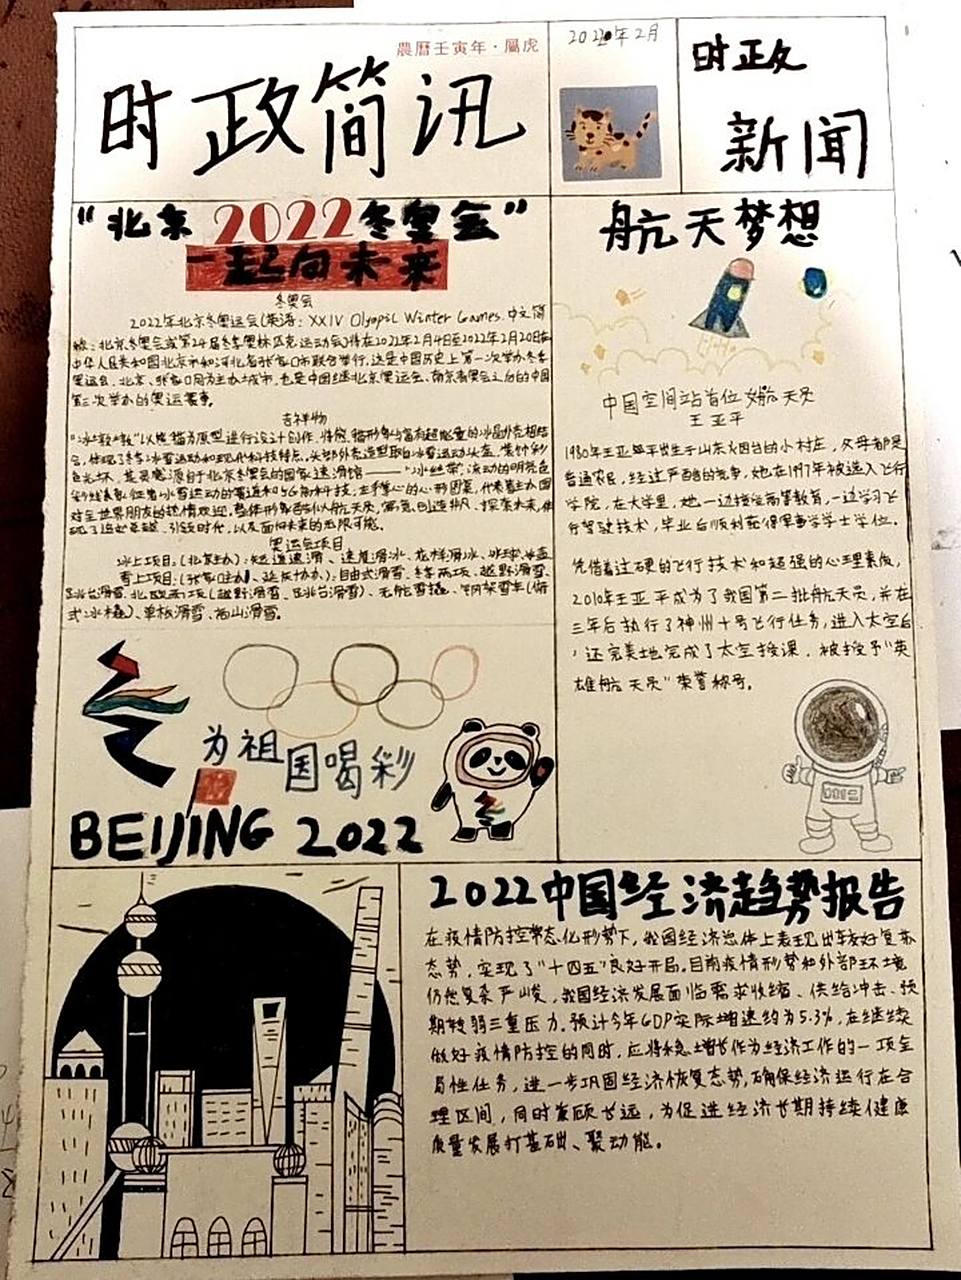 農曆壬寅年·屬虎
时政简讯
2022年2月
时政
新闻
“北京2022冬奥会”
一起向未来
冬奥会
2022年北京冬奥运会(英语:XXIV Olyopil Winter Games.中文简
称:北京冬奥会或第24届冬季奥林匹克运动会)将在2022年2月4日至2022年2月20日在
中华人民共和国北京市和河北省张家口市联合举行,这是中国历史上第一次举办冬季
奥运会,北京、张家口同为主办城市,也是中国继北京奥运会、南京青奥会之后的中国
第三次举办的奥运赛事。
吉祥物
“冰墩墩”以熊猫为原型进行设计创作,将熊猫形象与富有超能量的冰晶外壳相结
合,体现了冬季冰雪运动和现代科技特点。头部外壳造型取自冰雪运动头盔,装饰彩
色光环,其灵感源自于北京冬奥会的国家速滑馆——“冰丝带”,流动的明亮色
彩线条象征着冰雪运动的赛道和5G高科技;左手掌心的心形图案,代表着主办国
对全世界朋友的热情欢迎。整体形象酷似航天员,寓意创造非凡、探索未来,体
现了追求卓越、引领时代,以及面向未来的无限可能。
奥运会项目
冰上项目:(北京主办):短道速滑、速度滑冰、花样滑冰、冰球、冰壶
雪上项目:(张家口主办、延庆协办):自由式滑雪、冬季两项、越野滑雪、
跳台滑雪、北欧两项(越野滑雪、跳台滑雪)、无舵雪橇、钢架雪车(俯
式冰橇)、单板滑雪、高山滑雪。
为祖国喝彩
BEIJING 2022
航天梦想
中国空间站首位女航天员
王亚平
1980年王亚平出生于山东烟台的小村庄,父母都是
普通农民,经过严酷的竞争,她在1997年被选入飞行
学院,在大学里,她一边接受高等教育,一边学习飞
行驾驶技术,毕业后顺利获得军事学学士学位。
凭借着过硬的飞行技术和超强的心理素质,
2010年王亚平成为了我国第二批航天员,并在
三年后执行了神州十号飞行任务,进入太空后
,还完美地完成了太空授课,被授予“英
雄航天员”荣誉称号。
2022中国经济趋势报告
在疫情防控常态化形势下,我国经济总体上表现出较好复苏
态势,实现了“十四五”良好开局。目前疫情形势和外部环境
仍然复杂严峻,我国经济发展面临需求收缩、供给冲击、预
期转弱三重压力。预计今年GDP实际增速约为5.3%,在继续
做好疫情防控的同时,应将稳增长作为经济工作的一项全
局性任务,进一步巩固经济恢复态势,确保经济运行在合
理区间,同时兼顾长远,为促进经济长期持续健康
质量发展打基础、聚动能。